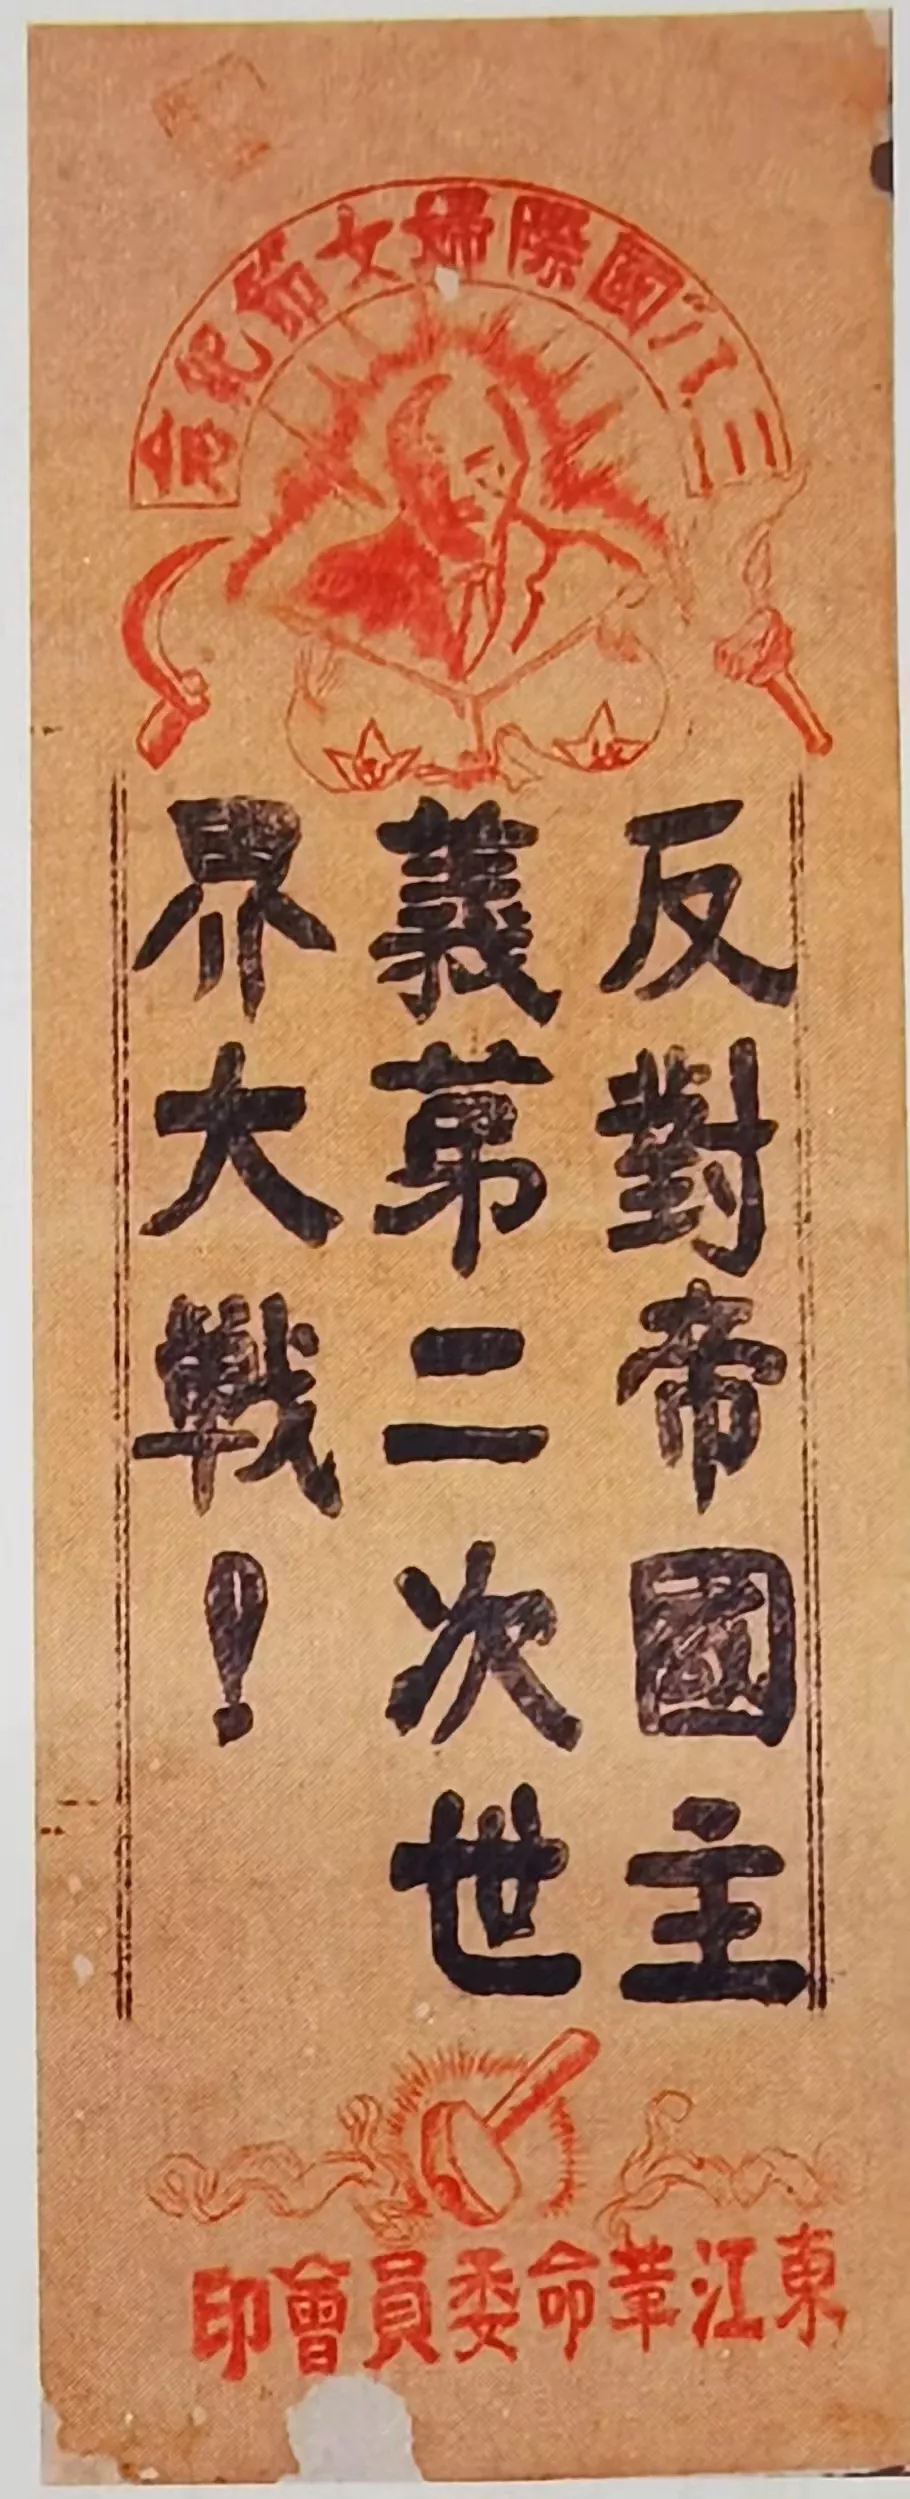 三八國際婦女節紀念
反對帝國主
義第二次世
界大戰！
東江革命委員會印